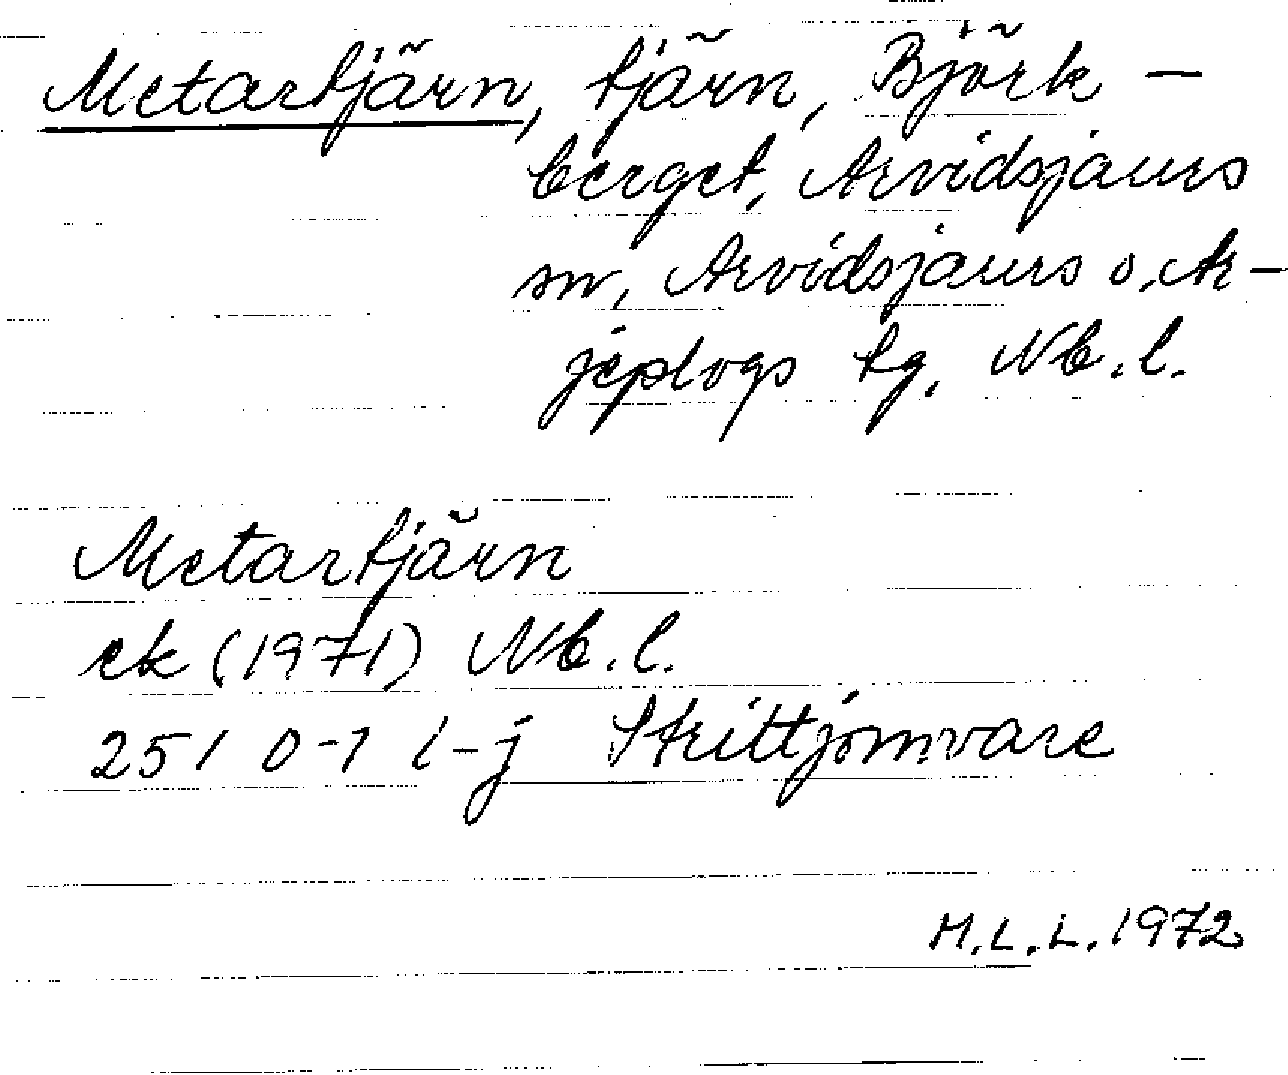 Metartjärn, tjärn, Björk-
berget, Arvidsjaurs
sn, Arvidsjaurs o. Ar-
jeplogs tg, Nb.l.
Metartjärn
ek (1971) Nb.l.
251 0-1 i-j Strittjomvare
M.L.L. 1972